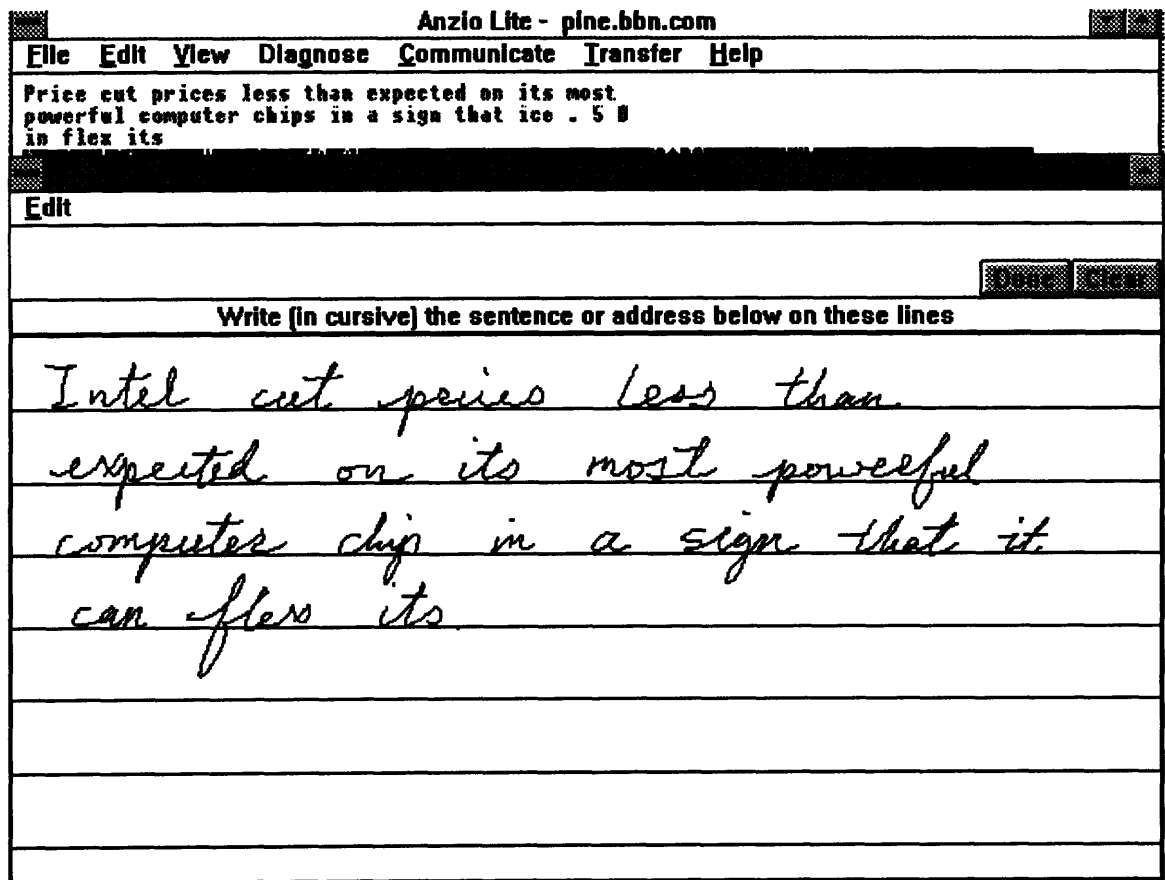 Anzio Lite - pine.bbn.com
File Edit View Diagnose Communicate Transfer Help
Price cut prices less than expected on its most
powerful computer chips in a sign that ice . 5 0
in flex its
Edit
Done Clear
Write (in cursive) the sentence or address below on these lines
Intel cut prices less than
expected on its most powerful
computer chip in a sign that it
can flex its